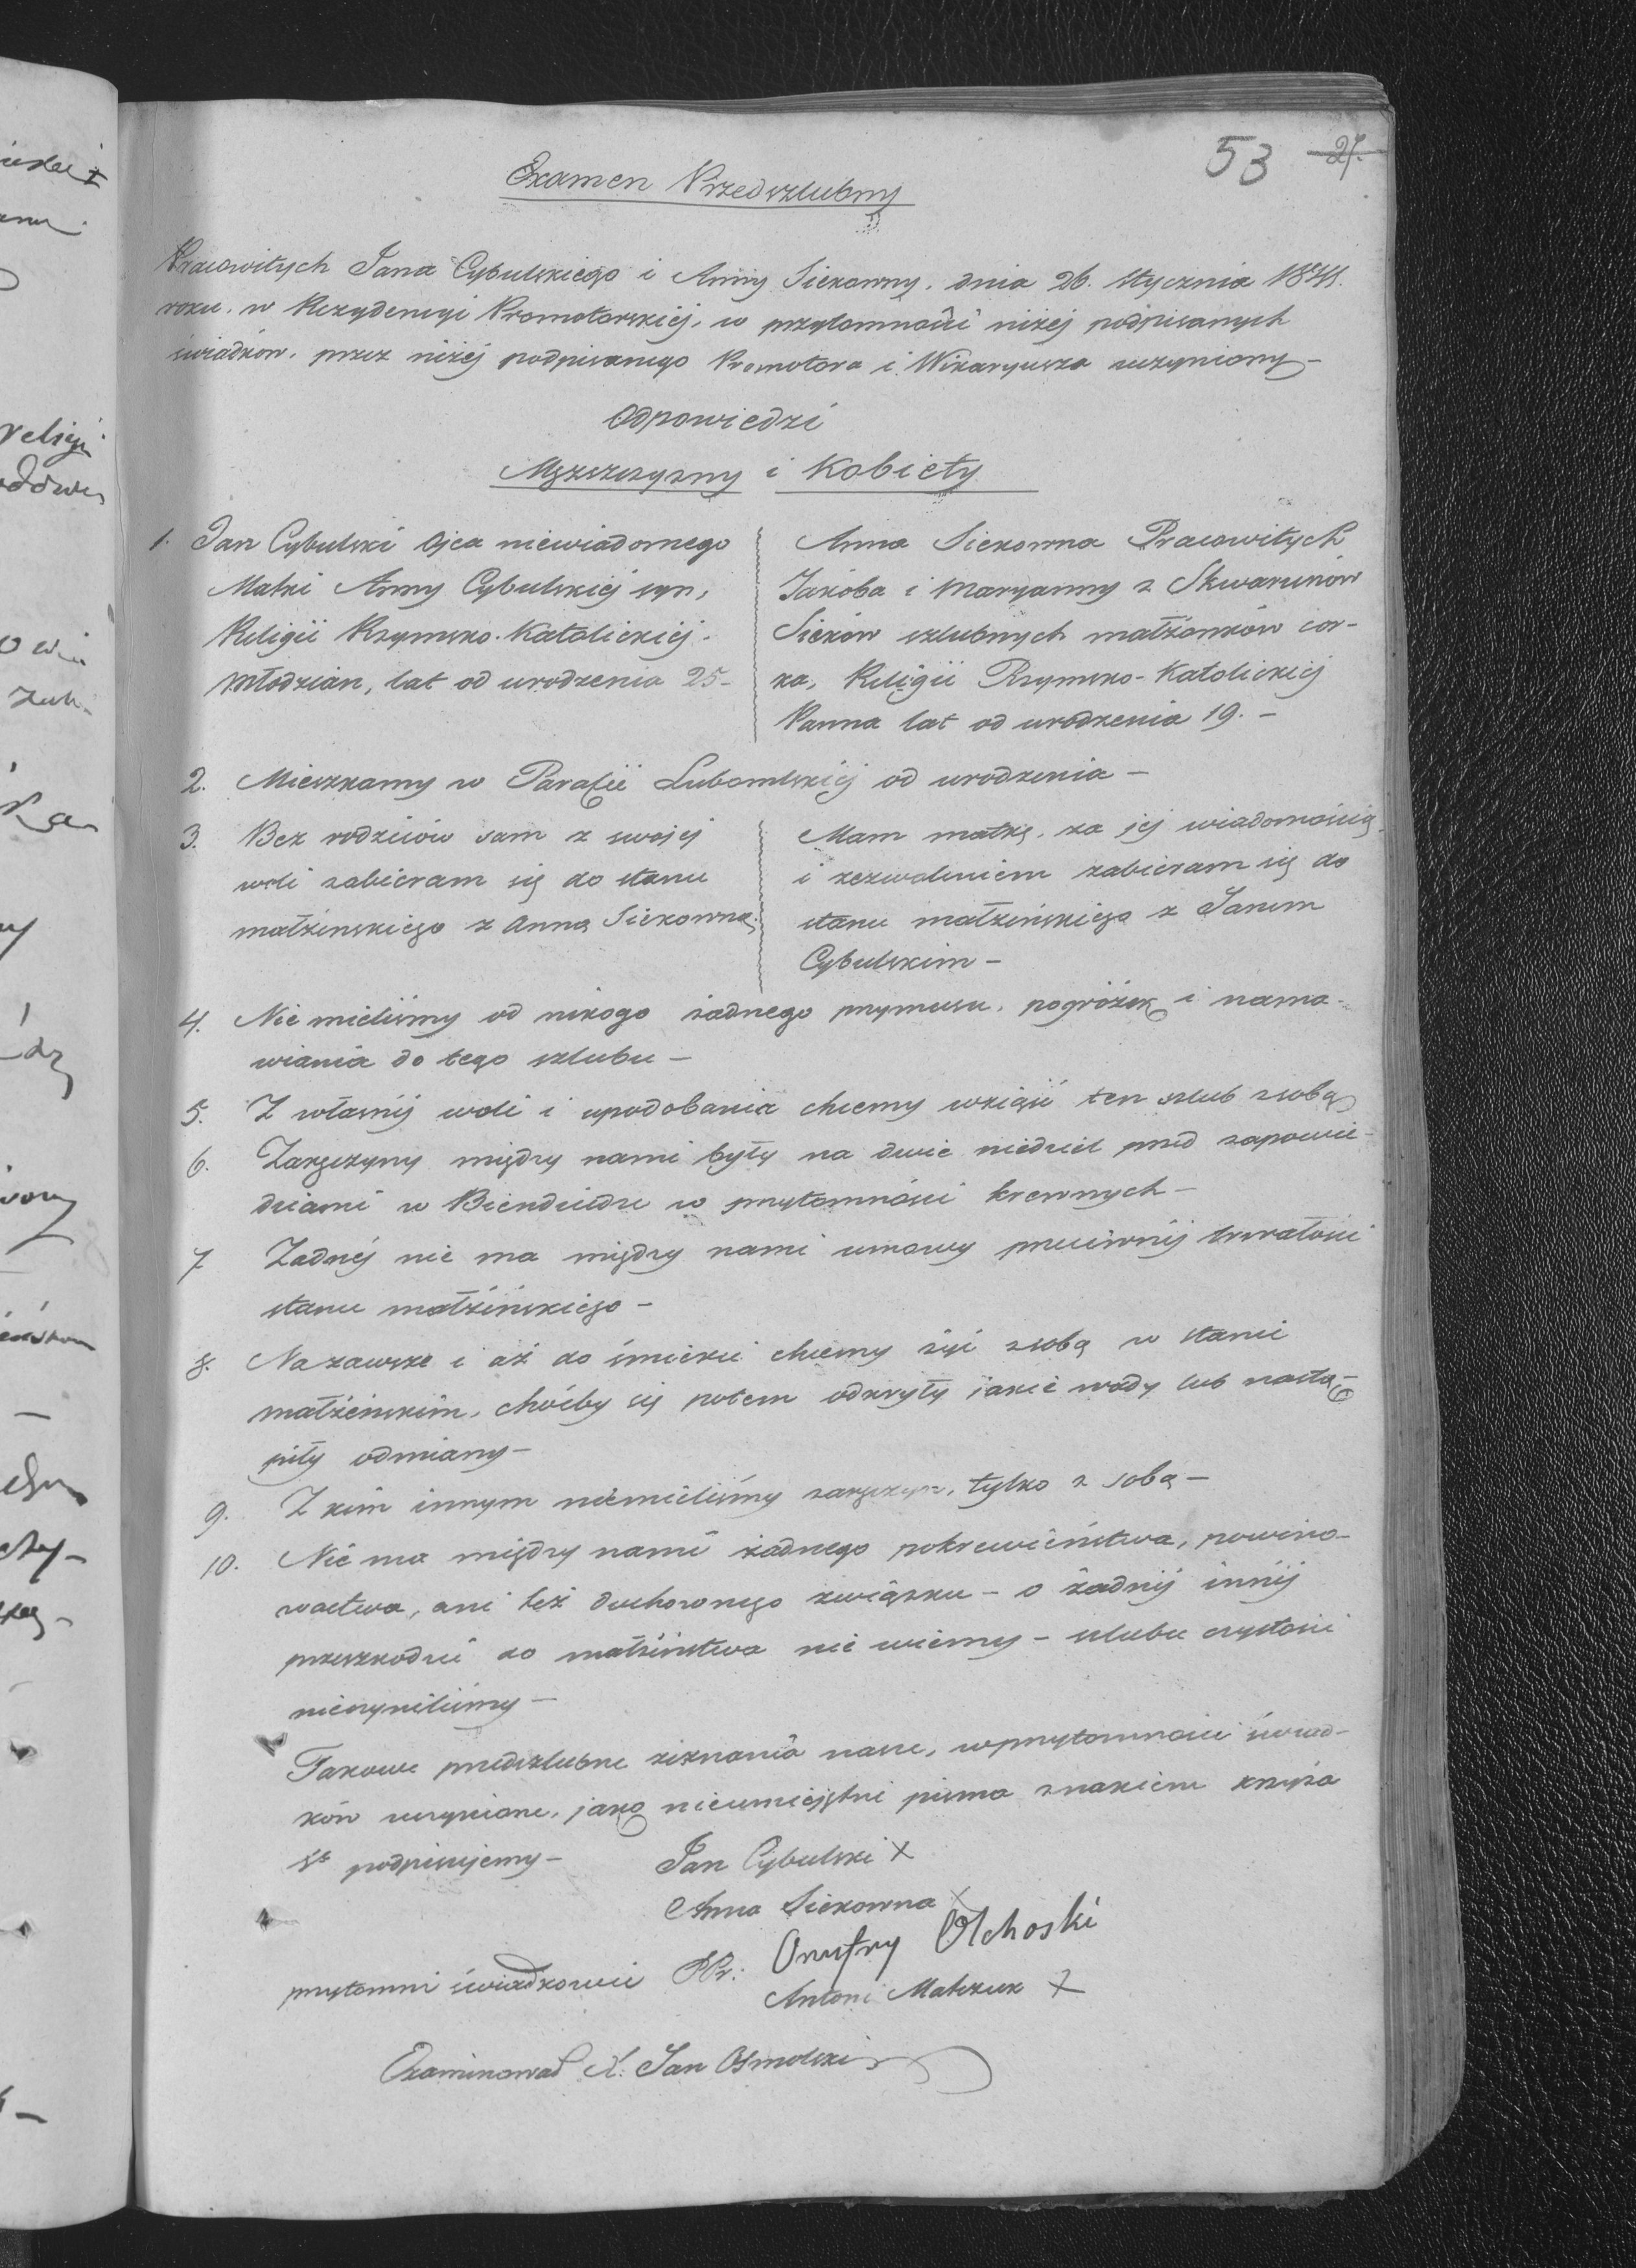 53 27.
Examen Przedszlubny
Pracowitych Jana Cybulskiego i Anny Siekowny, dnia 26. Stycznia 1841.
roku, w Rezydencyi Promotorskiéj, w przytomności niżéj podpisanych
świadków, przez niżéj podpisanego Promotora i Wikaryusza uczyniony –
Odpowiedzi
Męzczyzny i Kobiety
1. Jan Cybulski Ojca niewiadomego
Matki Anny Cybulskiéj syn,
Religii Rzymsko-Katolickiéj.
Młodzian, lat od urodzenia 25 –
Anna Siekowna Pracowitych
Jakóba i Maryanny z Skwaruków
Sieków szlubnych małżonków cor-
ka, Religii Rzymsko-Katolickiéj
Panna lat od urodzenia 19. –
2. Mieszkamy w Parafii Lubomlskiéj od urodzenia –
3. Bez rodziców sam z swojéj
woli zabieram się do stanu
małżenskiego z Anną Siekowną.
Mam matkę, za jéj wiadomością
i zezwoleniem zabieram się do
stanu małżeńskiego z Janem
Cybulskim –
4. Nie mieliśmy od nikogo żadnego przymusu, pogróżek i nama-
wiania do tego szlubu –
5. Z własnéj woli i upodobania chcemy wziąść ten szlub z sobą
6. Zaręczyny między nami były na dwie niedziel przed zapowie-
dziami w w przytomności krewnych –
7. Żadnéj nie ma między nami umowy przeciwnéj trwałości
stanu małżeńskiego –
8. Na zawsze i aż do śmierci chcemy żyć z sobą w stanie
małżeńskim, choćby się potem odkryły jakie wady lub nastą-
piły odmiany –
9. Z kim innym niemieliśmy zaręczyn, tylko z sobą –
10. Nie ma między nami żadnego pokrewieństwa, powino-
wactwa, ani też duchownego związku – o żadnéj innéj
przeszkodzie do małżeństwa nie wiemy – szlubu czystości
nieczyniliśmy –
Takowe przedszlubne zeznania nasze, w przytomności świad-
ków uczynione, jako nieumiejętni pisma znakiem krzyża
St podpisujemy –
Jan Cybulski X
Anna Siekowna X
przytomni świadkowie PPr: Onufry Olchoski
Antoni X
Examinował X. Jan Osmolski